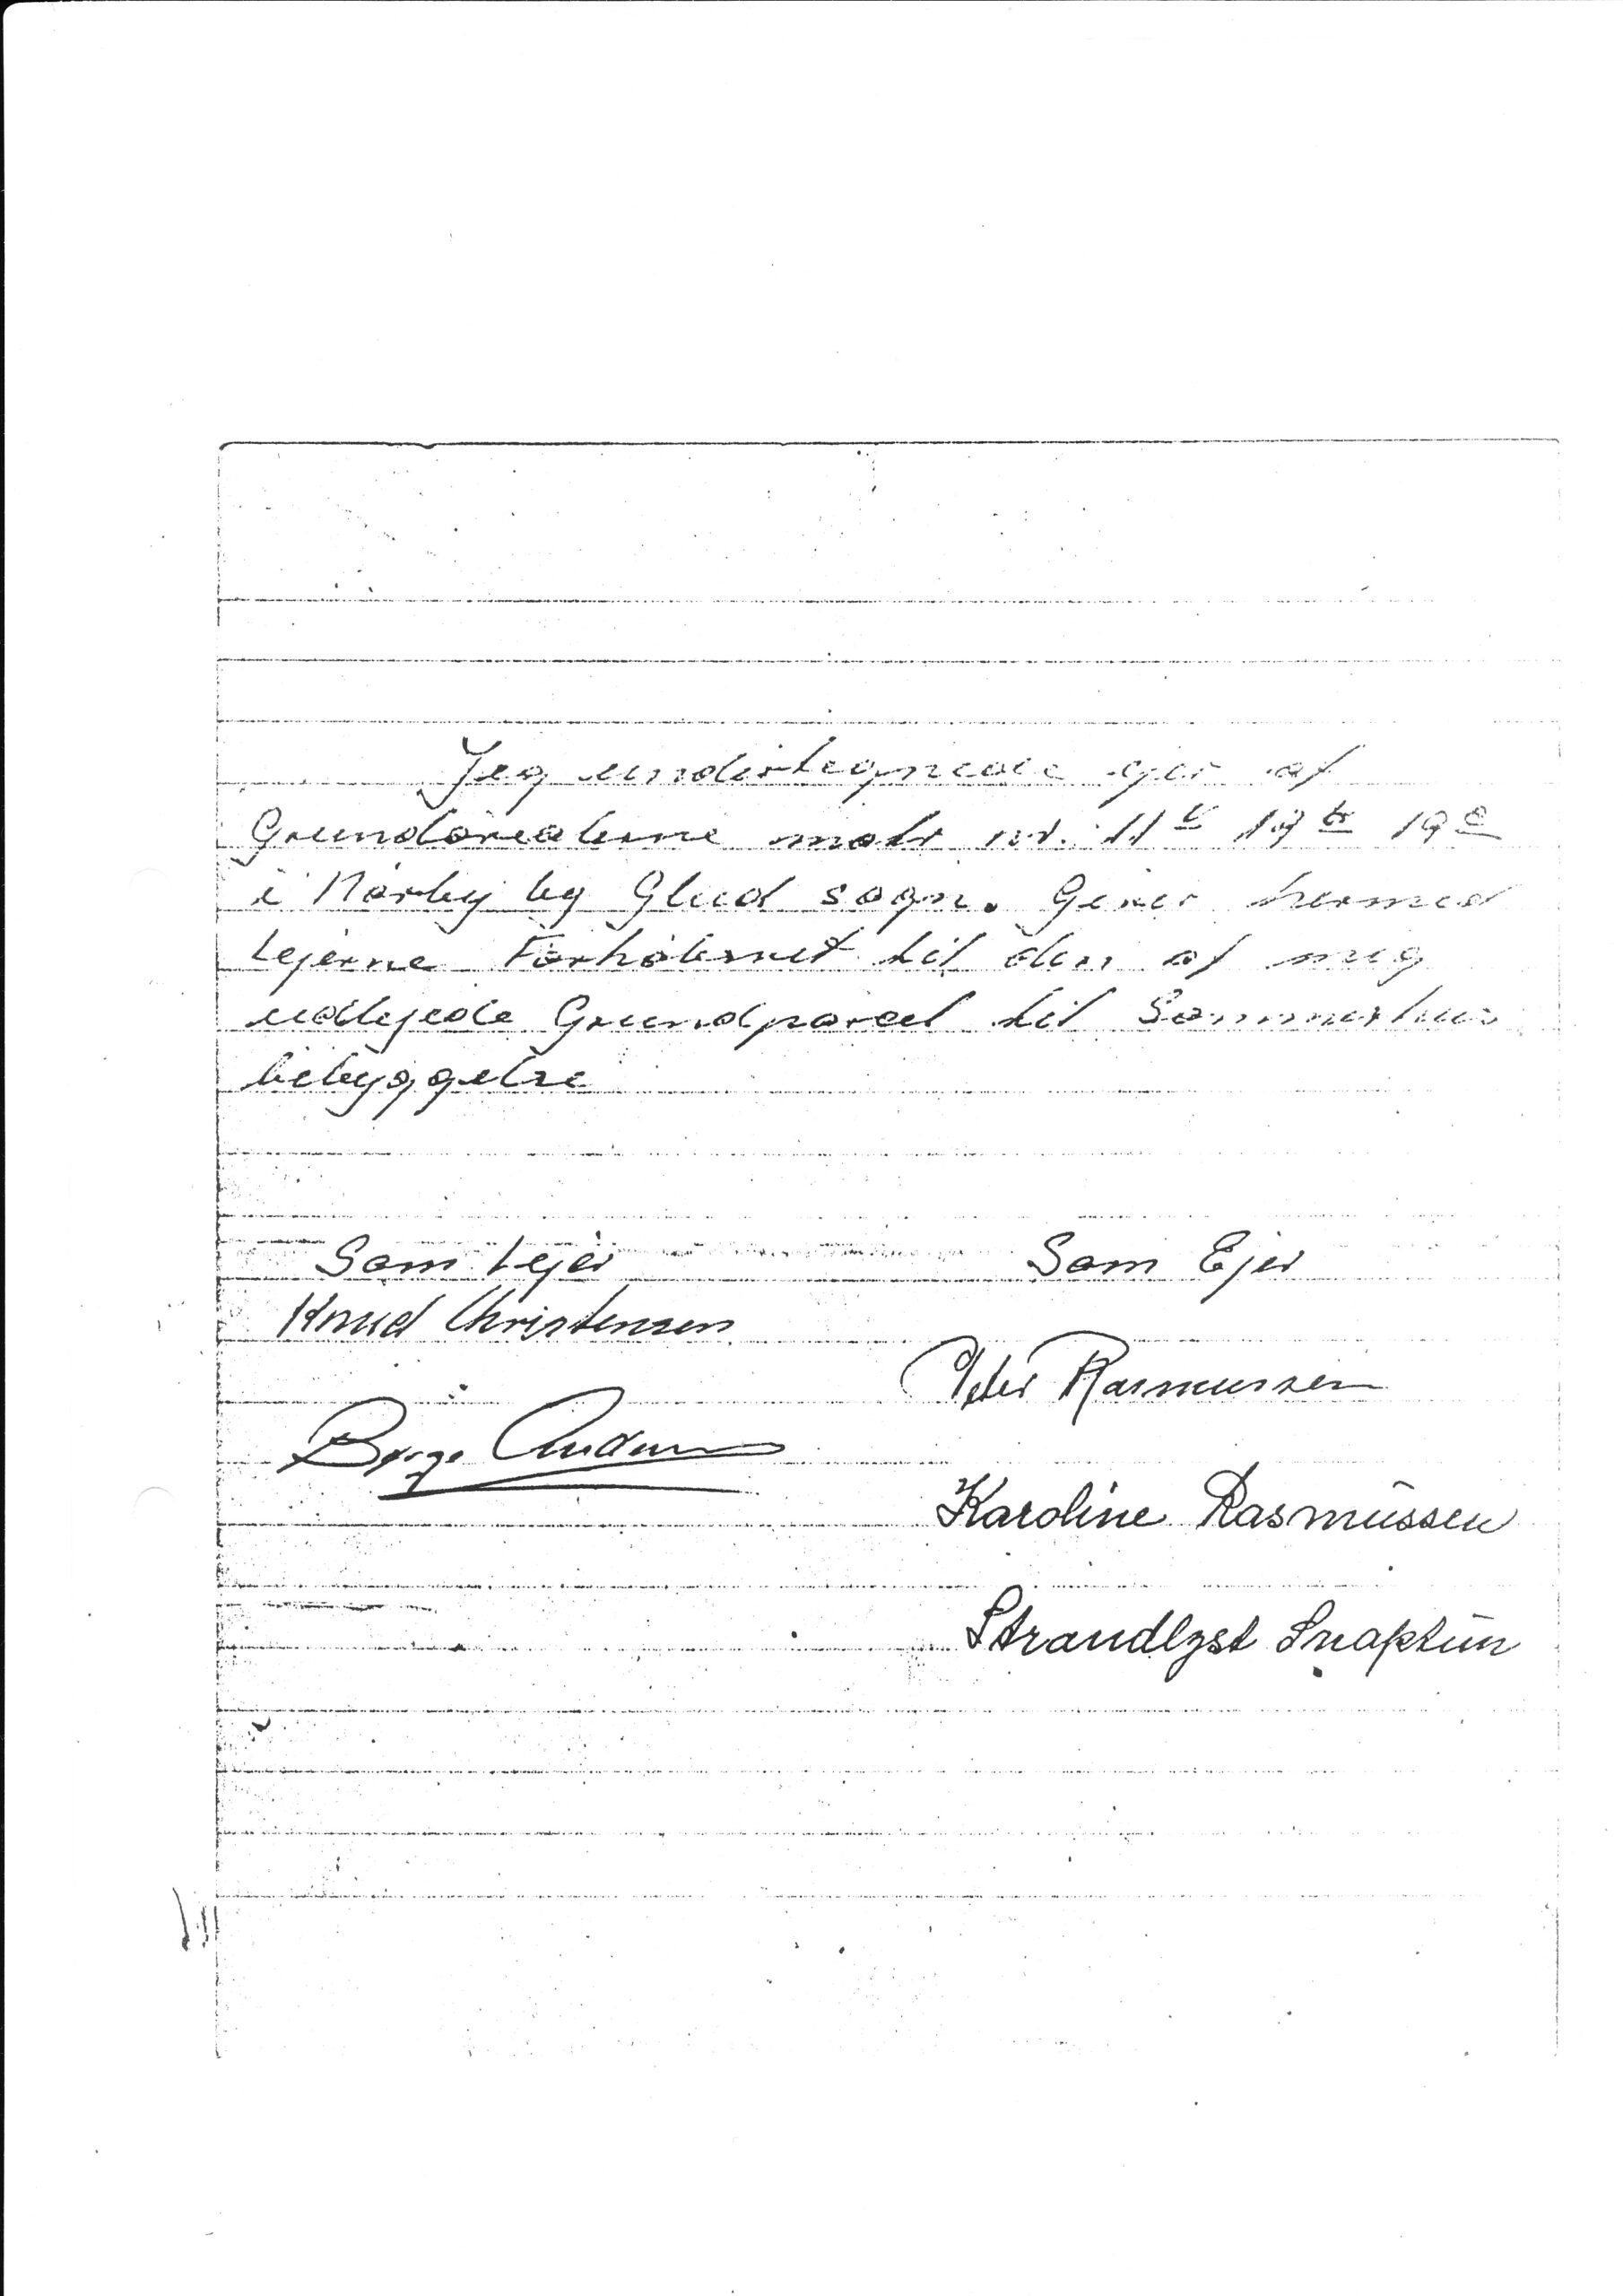 Jeg undertegnede ejer af
Grundarealerne matr nr. 11
i Nørby by Glud sogn. Giver hermed
Lejerne Forkøbsret til den af mig
udlejede Grundparcel til Sommerhus
bebyggelse
Som Lejer Som Ejer
Knud Christensen
Peter Rasmussen
Børge
Karoline Rasmussen
Strandlyst Snaptun